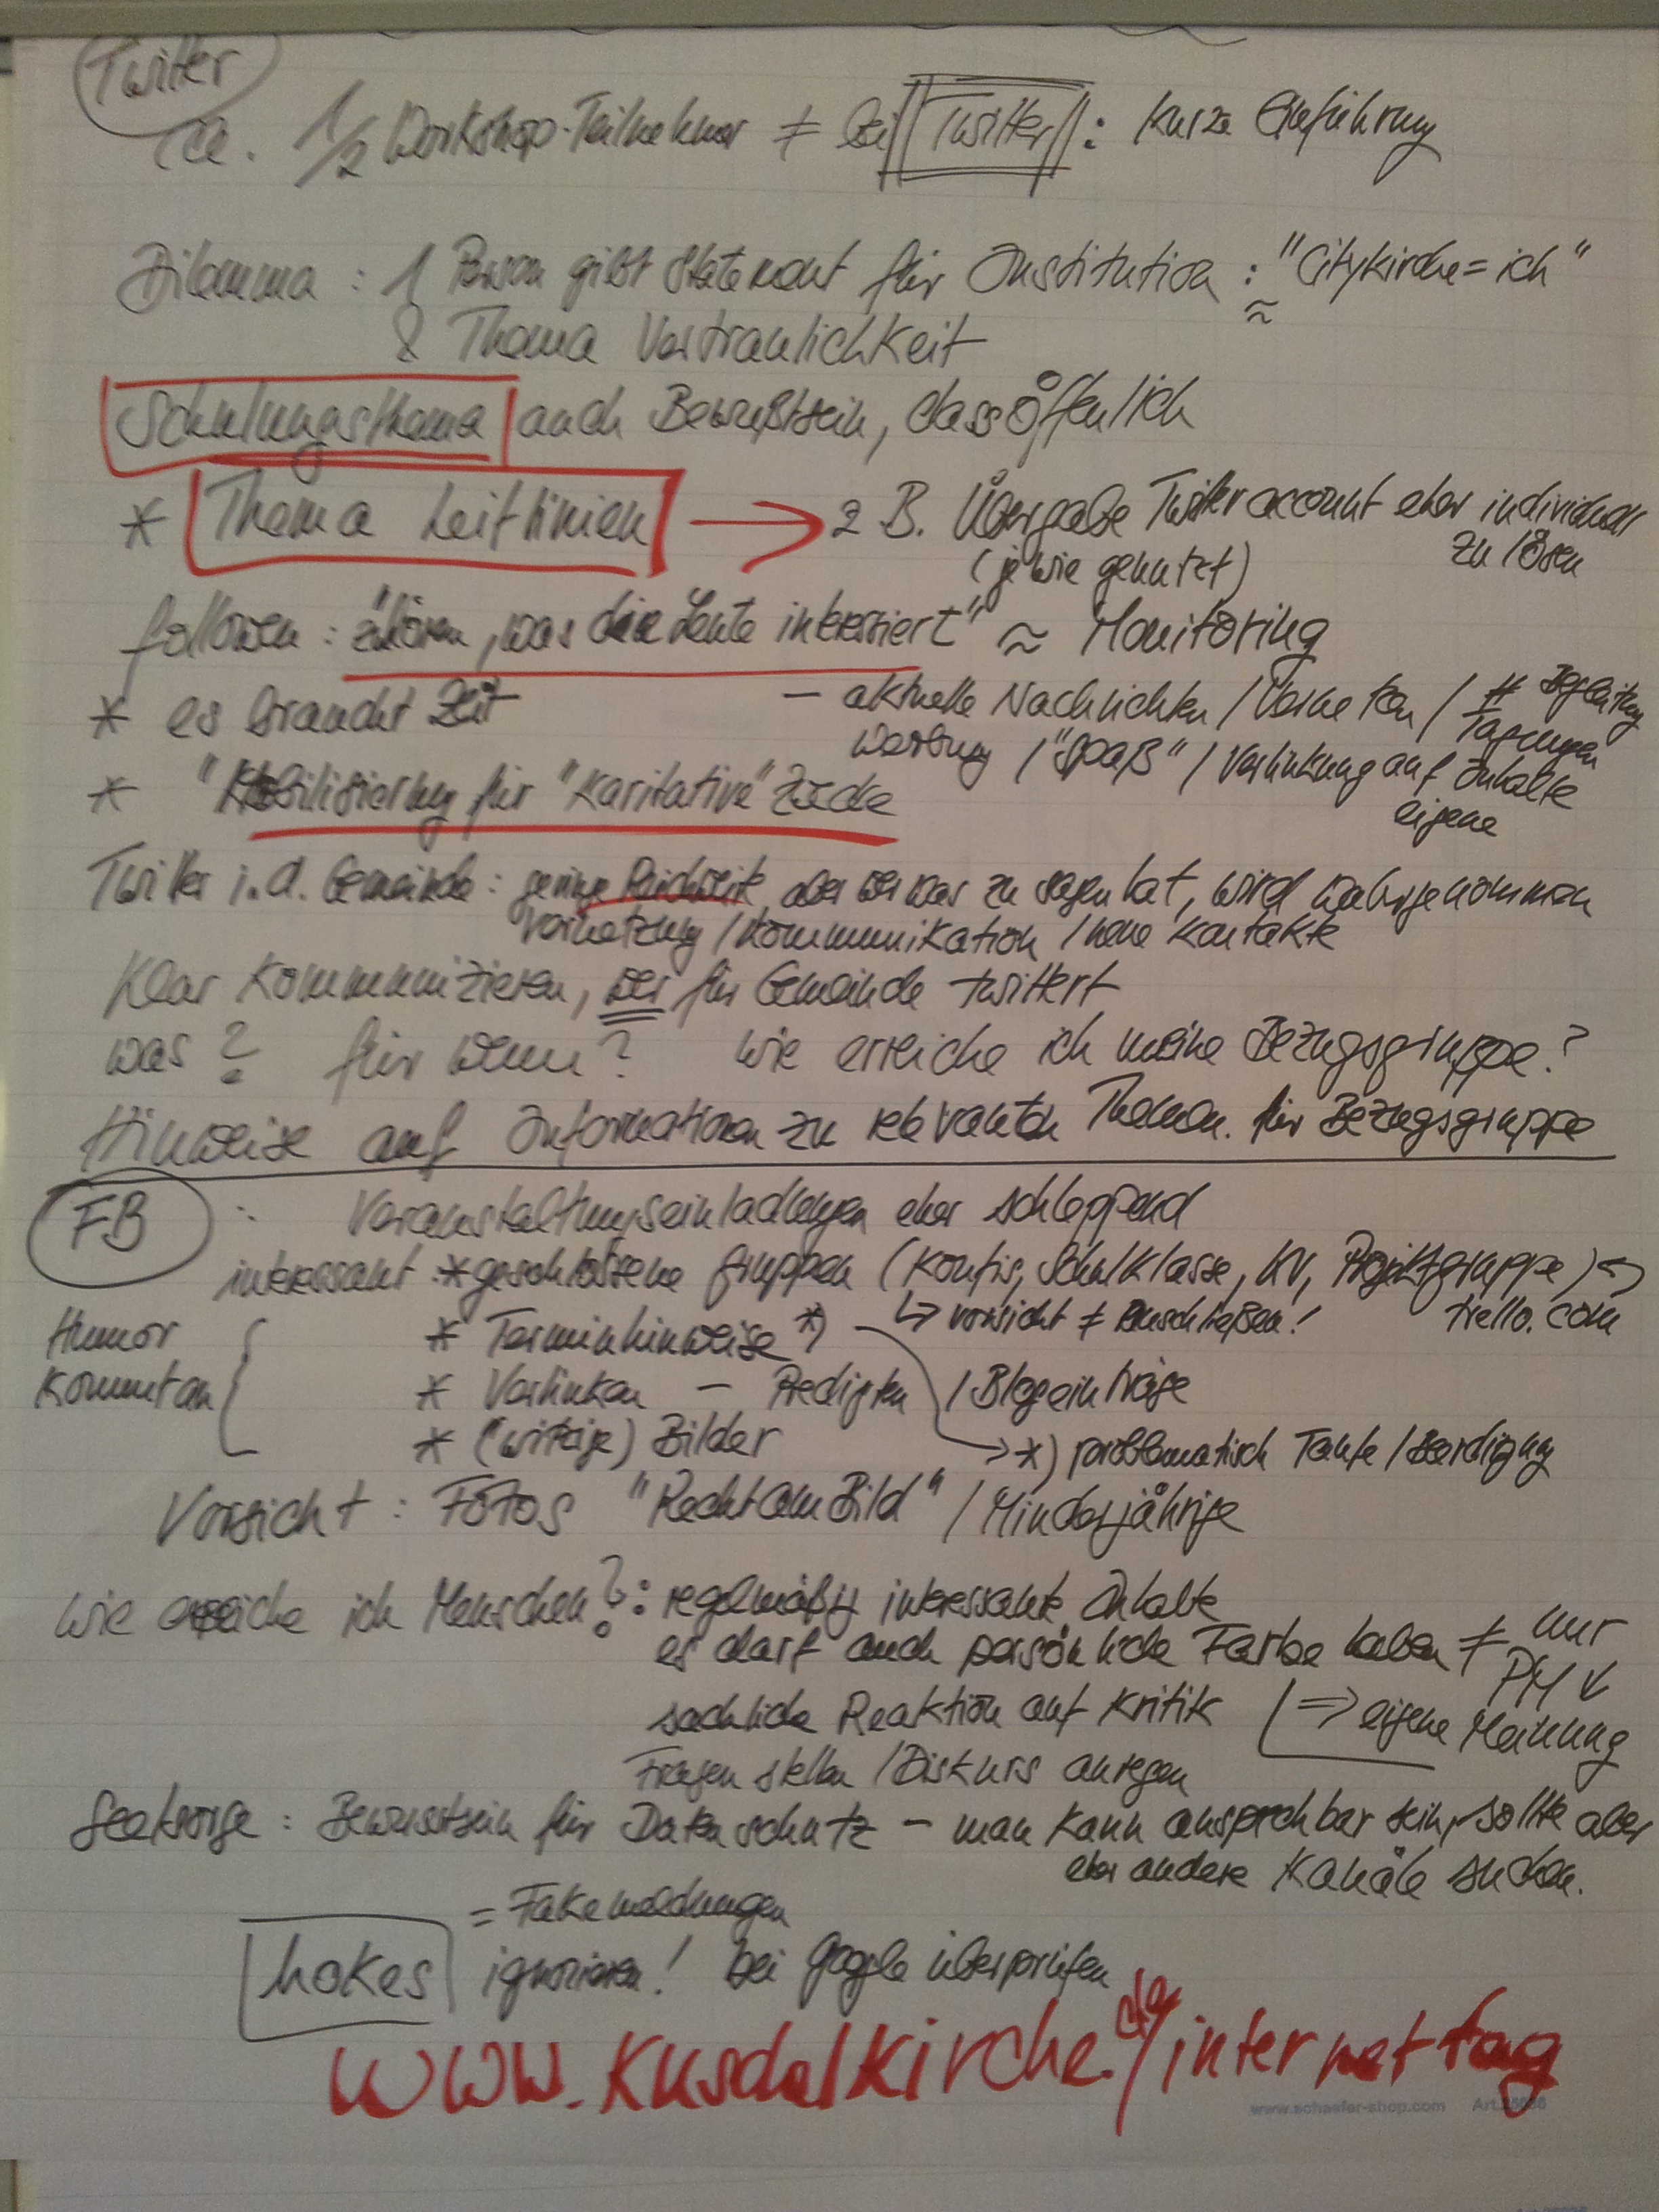 Twitter
ca. 1/2 Workshop-Teilnehmer ≠ bei Twitter: kurze Einführung
Dilemma: 1 Person gibt Statement für Institution: "Citykirche = ich"
≈
& Thema Vertraulichkeit
Schulungsthema auch Bewußtsein, dass öffenlich
* Thema Leitlinien → z B. Übergabe Twitteraccount eher individuell
(je wie genutzt) zu lösen
followen: "zuhören, was die Leute interessiert" ≈ Monitoring
* es braucht Zeit – aktuelle Nachrichten / Vernetzen / # Begleitung Tagungen
Werbung / "Spaß" / Verlinkung auf Inhalte
eigene
* "Mobilisierung für "Karitative" Zwecke
Twitter i.d. Gemeinde: geringe Reichweite, aber wer was zu sagen hat, wird wahrgenommen
Vernetzung / Kommunikation / neue Kontakte
Klar kommunizieren, wer für Gemeinde twittert
was? für wenn? wie erreiche ich meine Bezugsgruppe?
Hinweise auf Informationen zu relevanten Themen. für Bezugsgruppe
FB: Veranstaltungseinladungen eher schleppend
interessant * geschlossene Gruppen (Konfis, Schulklasse, KV, Projektgruppe)
↳ vorsicht ≠ Ausschließen! trello.com
Humor * Terminhinweise *)
Kommentan * Verlinken – Predigten / Blogeinträge
* (witzige) Bilder → *) problematisch Taufe / Beerdigung
Vorsicht: FOTOS "Recht am Bild" / Minderjährige
Wie erreiche ich Menschen?: regelmäßig interessante Inhalte
es darf auch persönliche Farbe haben ≠ nur PM
sachliche Reaktion auf Kritik ⇒ eigene Meinung
Fragen stellen / Diskurs anregen
Seelsorge: Bewusstsein für Datenschutz – man kann ansprechbar sein, sollte aber
eher andere Kanäle suchen.
= Fakemeldungen
hokes ignorieren! bei google überprüfen
www.kuschelkirche.de/internettag
www.schaefer-shop.com